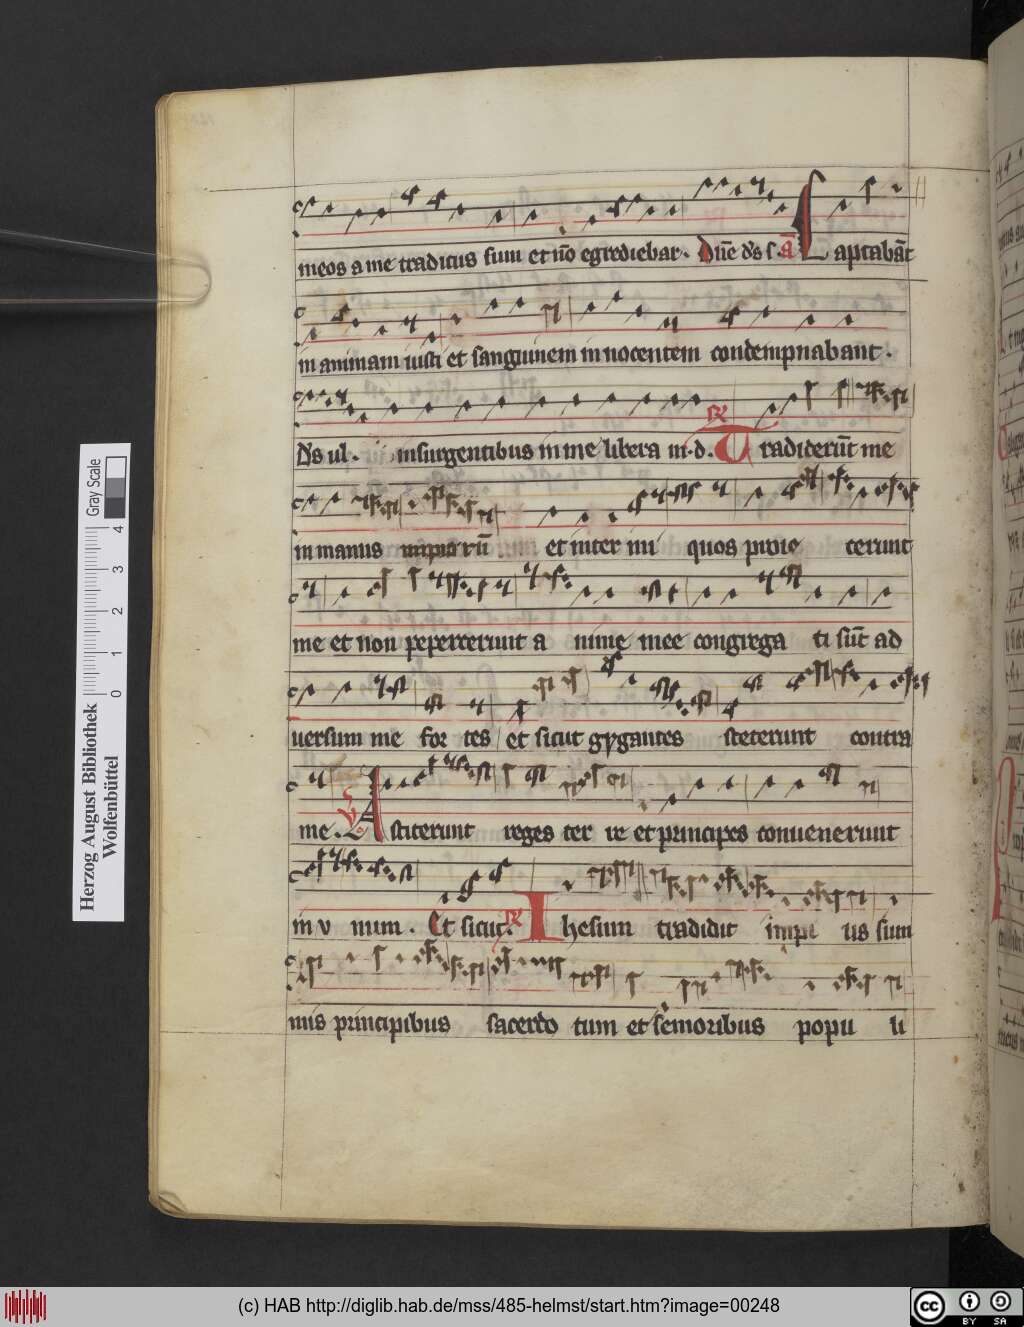 meos a me traditus sum et nō egrediebar. Dñe d's s. a Captabāt
in animam iusti et sanguinem innocentem condempnabant.
D's ul. insurgentibus in me libera m. d. R Tradiderūt me
in manus impiorū et inter mi quos proie cerunt
me et non pepercerunt a nime mee congrega ti sūt ad
uersum me for tes et sicut gygantes steterunt contra
me. V Astiterunt reges ter re et principes conuenerunt
in v num. Et sicut. R Ihesum tradidit impi us sum
mis principibus sacerdo tum et senioribus popu li
Herzog August Bibliothek
Wolfenbüttel
Gray Scale
0 1 2 3 4
(c) HAB http://diglib.hab.de/mss/485-helmst/start.htm?image=00248
cc BY SA